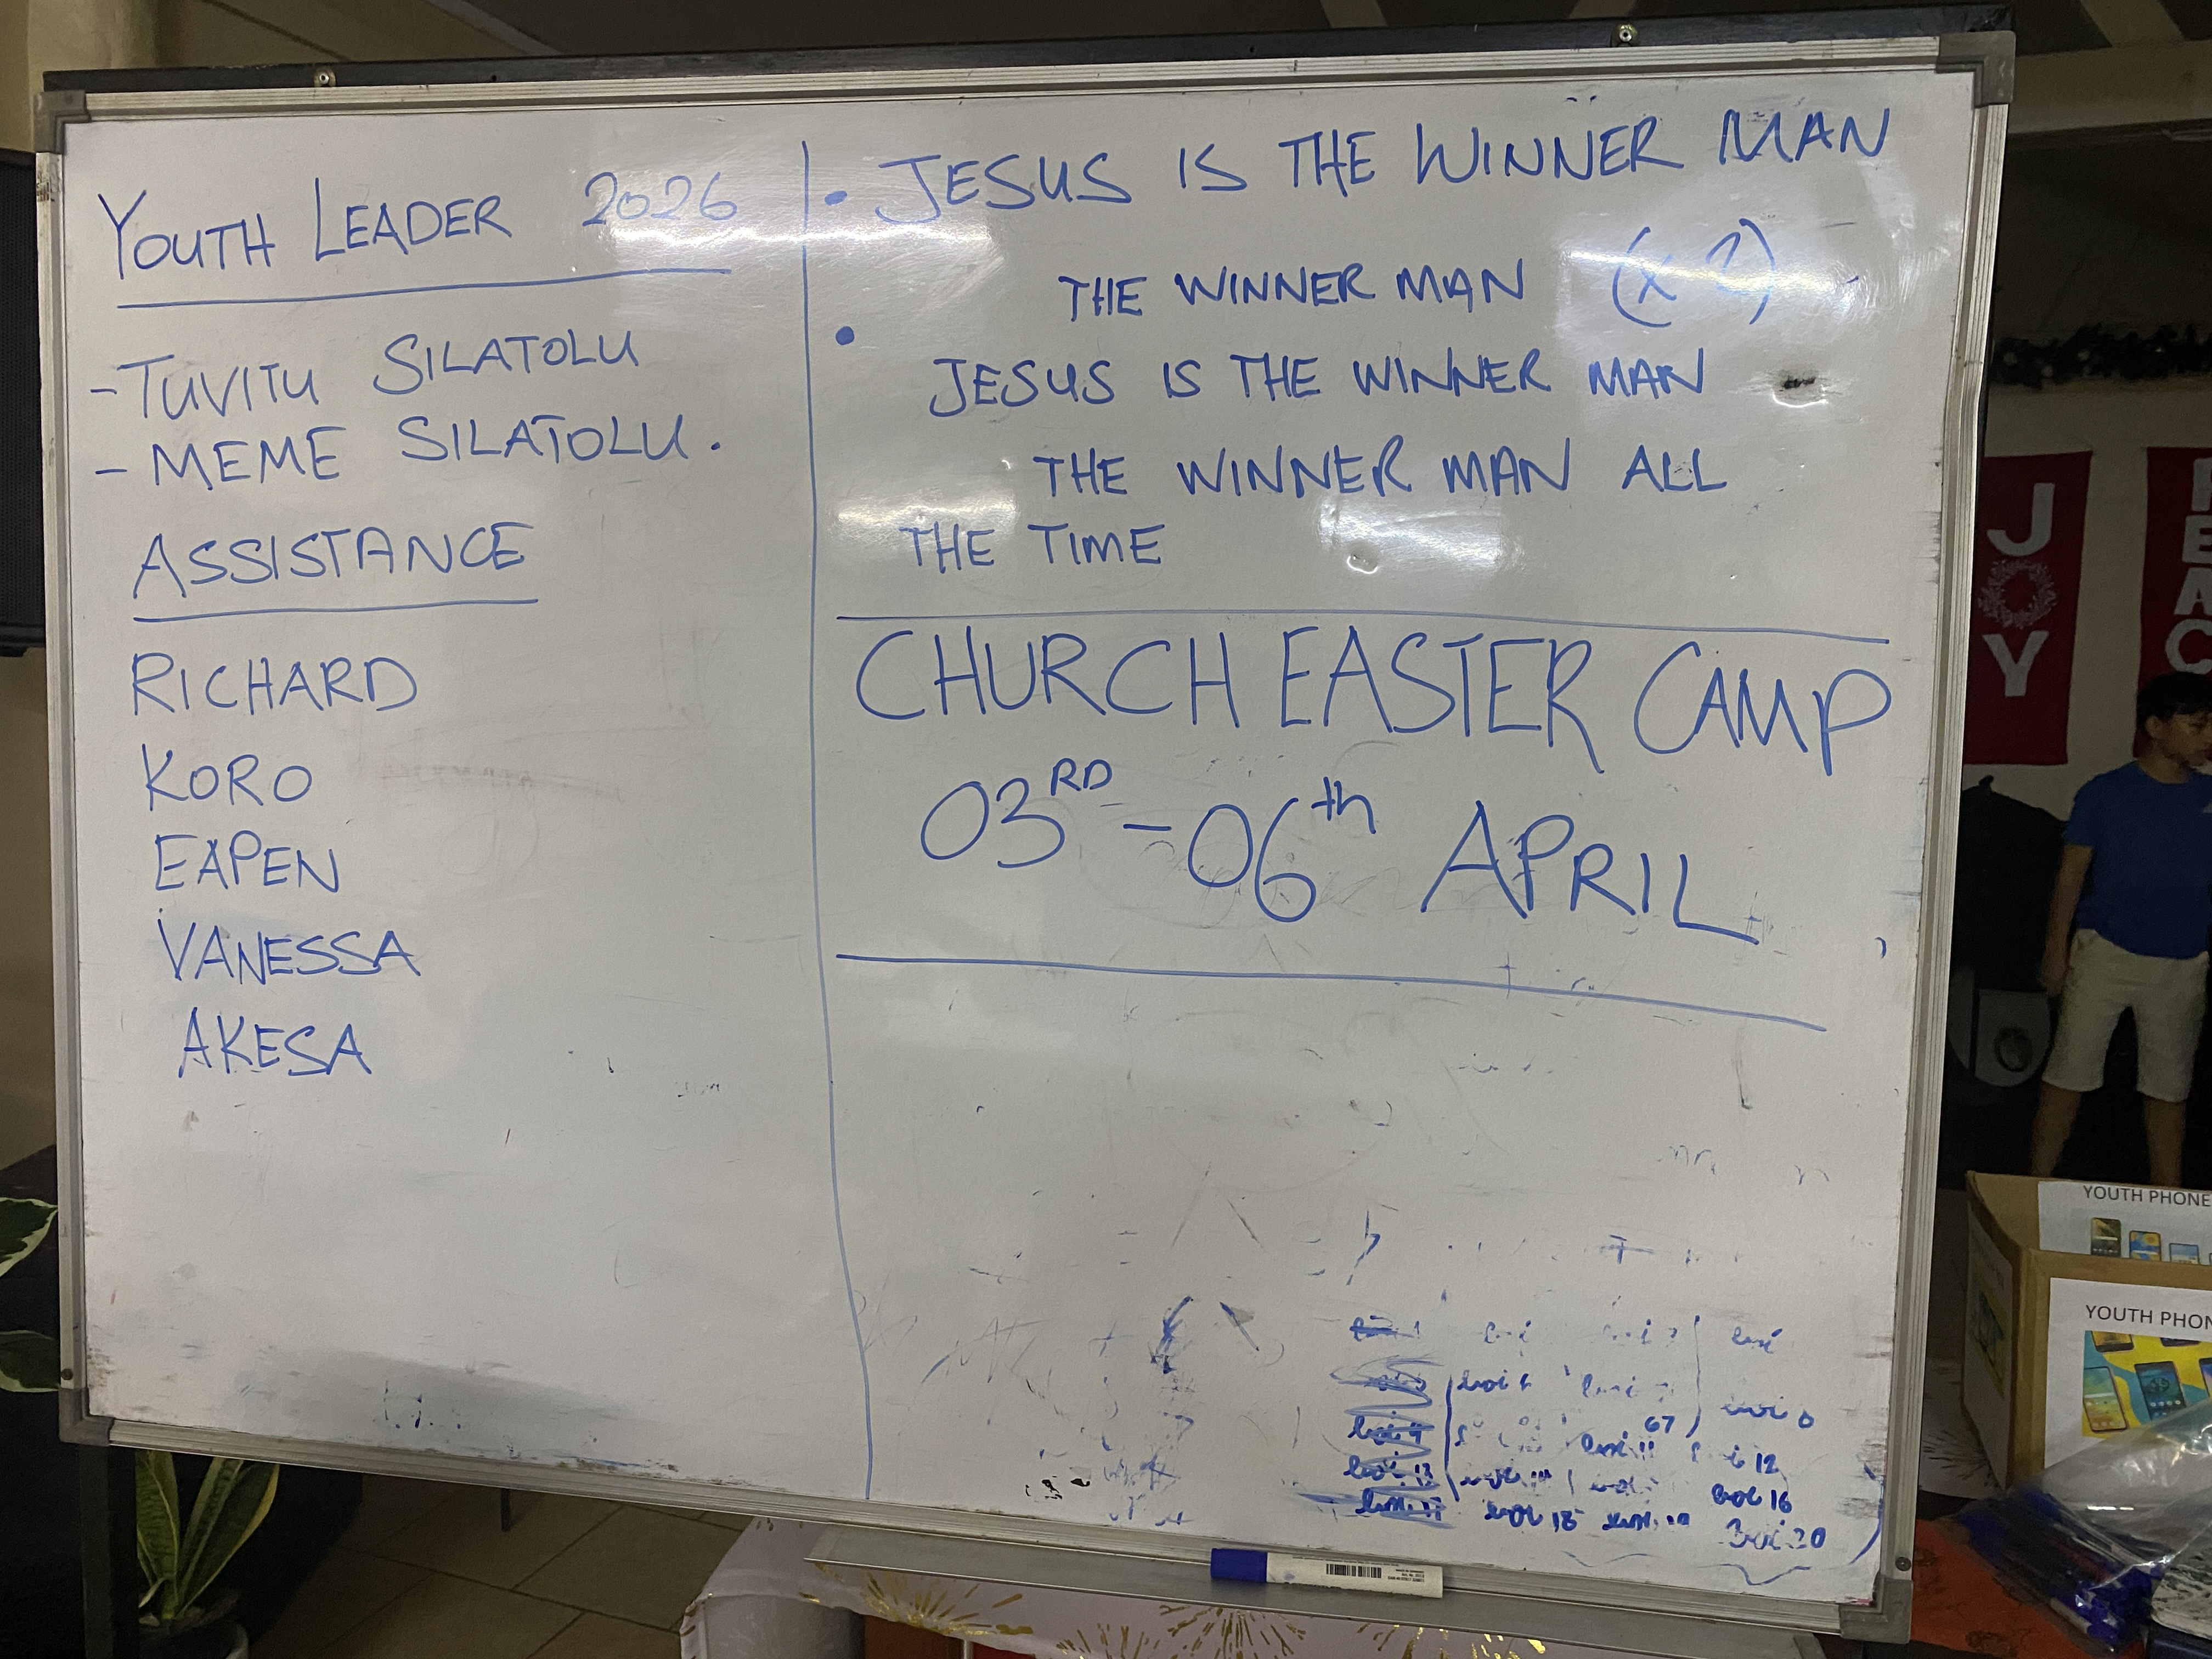 YOUTH LEADER 2026
- TUVITU SILATOLU
- MEME SILATOLU.
ASSISTANCE
RICHARD
KORO
EAPEN
VANESSA
AKESA
• JESUS IS THE WINNER MAN
THE WINNER MAN (x 2)
• JESUS IS THE WINNER MAN
THE WINNER MAN ALL
THE TIME
CHURCH EASTER CAMP
03RD - 06th APRIL
67
11
12
16
18
20
JOY
YOUTH PHONE
YOUTH